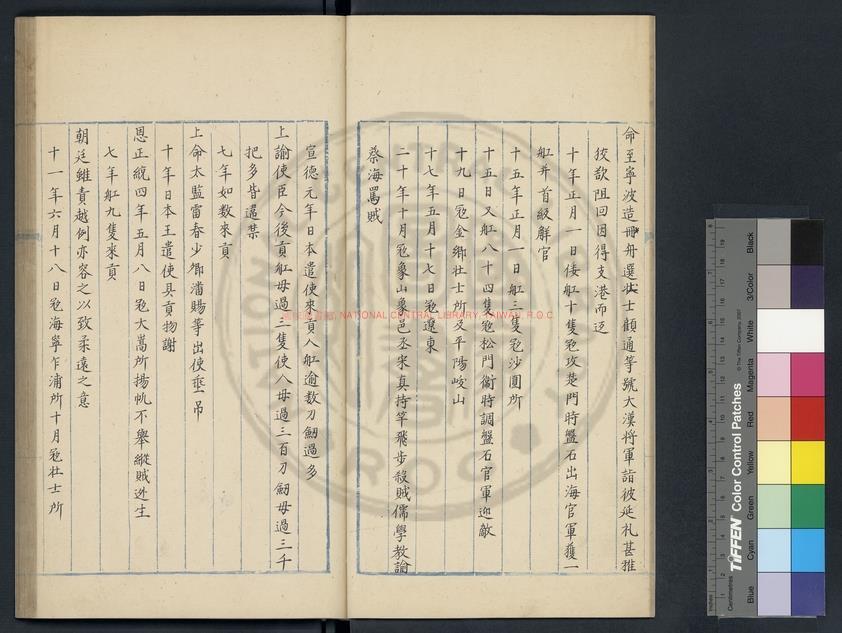 命至寧波造冊舟選壯士顧通等號大漢将軍詣彼延礼甚雅
狡欲阻回因得支港而迯
十年正月一日倭舡十隻𡨥攻楚門時盤石出海官軍獲一
舡并首級觧官
十五年正月一日舡三隻𡨥沙園所
十五日又舡八十四隻𡨥松門衛時調盤石官軍迎敵
十九日𡨥金鄉壮士所及平陽峻山
十七年五月十七日𡨥遼東
二十年十月𡨥象山象邑丞宋真持竿飛步殺賊儒學教諭
蔡海罵賊
宣德元年日本遣使來貢人舡逾数刀劒過多
上諭使臣今後貢舡毋過三隻使人毋過三百刀劒毋過三千
把多皆還禁
七年如数來貢
上命太監雷春少卿潘賜等出使垂吊
十年日本王遣使具貢物謝
恩正統四年五月八日𡨥大嵩所揚帆不舉縱賊迯生
七年舡九隻來貢
朝廷雖責越例亦容之以致柔遠之意
十一年六月十八日𡨥海寧乍浦所十月𡨥壮士所
NATIONAL CENTRAL LIBRARY, TAIWAN, R.O.C.
TIFFEN Color Control Patches
© The Tiffen Company, 2007
Blue
Cyan
Green
Yellow
Red
Magenta
White
3/Color
Black
Centimetres
Inches